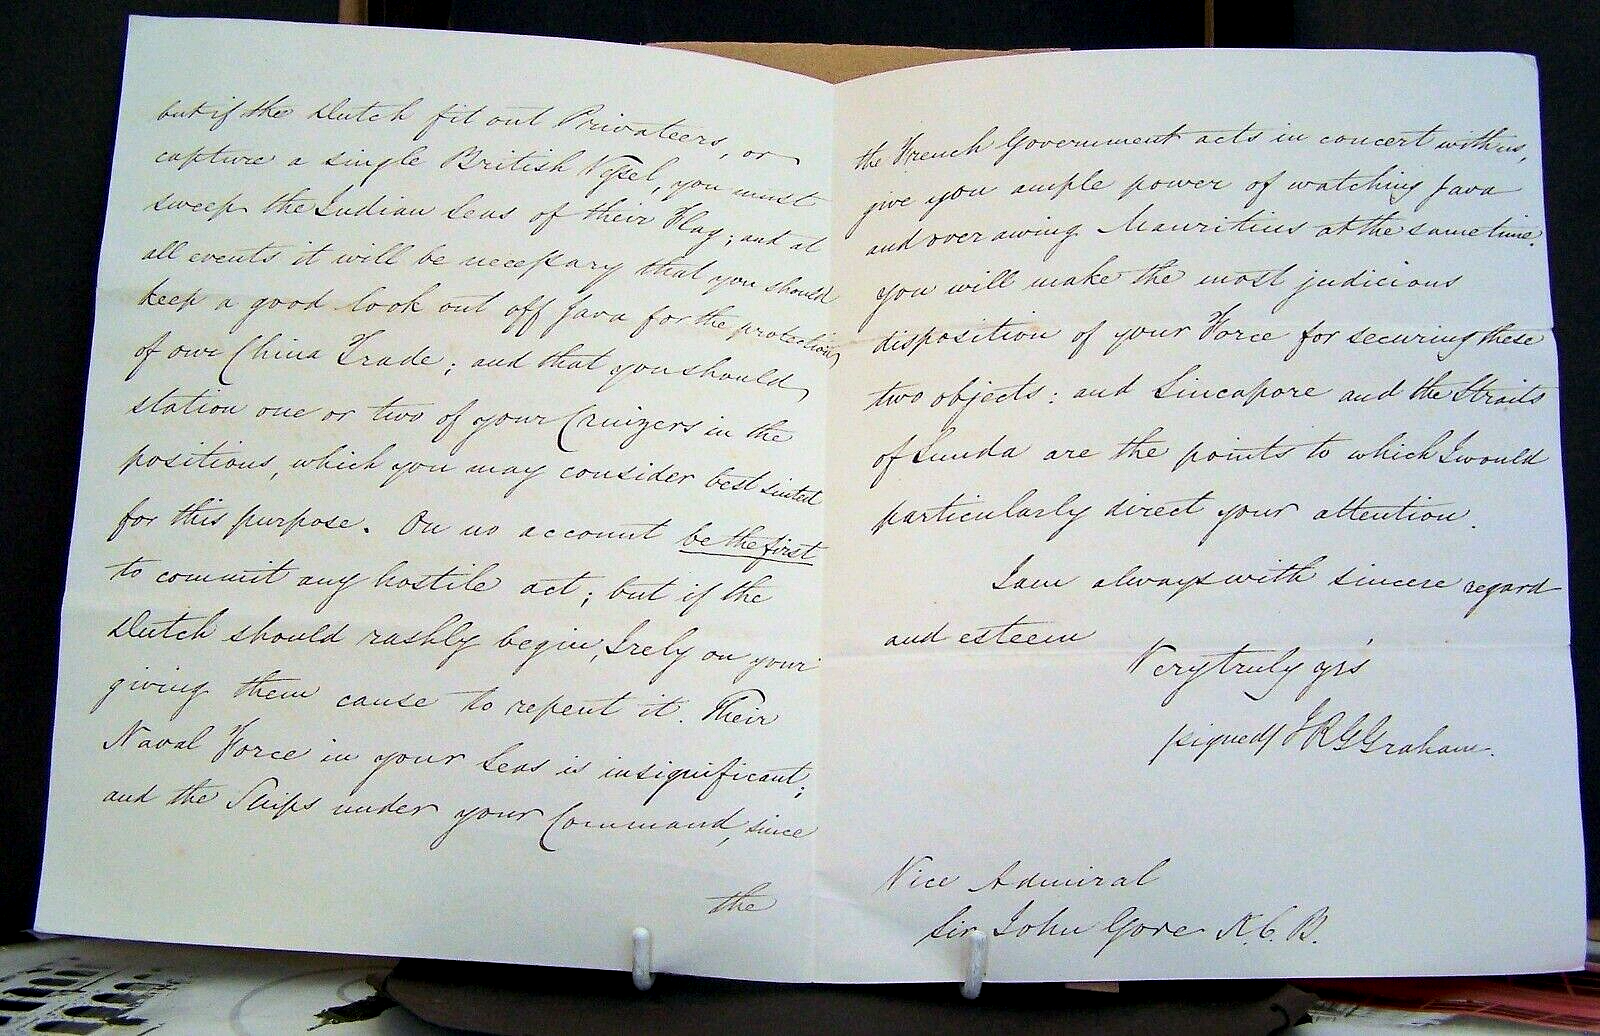 but if the Dutch fit out Privateers, or
capture a single British Vessel, you must
sweep the Indian Seas of their Flag; and at
all events it will be necessary that you should
keep a good look out off Java for the protection
of our China Trade; and that you should
station one or two of your Cruizers in the
positions, which you may consider best suited
for this purpose. On no account be the first
to commit any hostile act; but if the
Dutch should rashly begin, I rely on your
giving them cause to repent it. Their
Naval Force in your Seas is insignificant;
and the Ships under your Command, since
the
the French Government acts in concert with us,
give you ample power of watching Java
and over awing Mauritius at the same time.
you will make the most judicious
disposition of your Force for securing these
two objects: and Sincapore and the Straits
of Sunda are the points to which I would
particularly direct your attention.
I am always with sincere regard
and esteem
Very truly yrs
(signed) J R G Graham.
Vice Admiral
Sir John Gore K.C.B.